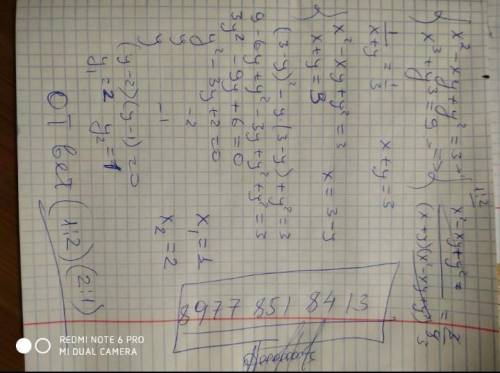 x² - xy + y² = 3
x³ + y³ = 9 =>
1/(x+y) = 1/3
x + y = 3
x² - xy + y² = 3
x + y = 3
x = 3 - y
(3-y)² - y(3-y) + y² = 3
9 - 6y + y² - 3y + y² + y² = 3
3y² - 9y + 6 = 0
y² - 3y + 2 = 0
y -2
y -1
(y-2)(y-1) = 0
y₁ = 2 y₂ = 1
x₁ = 1
x₂ = 2
Ответ (1;2) (2;1)
8977 851 8413
REDMI NOTE 6 PRO
MI DUAL CAMERA